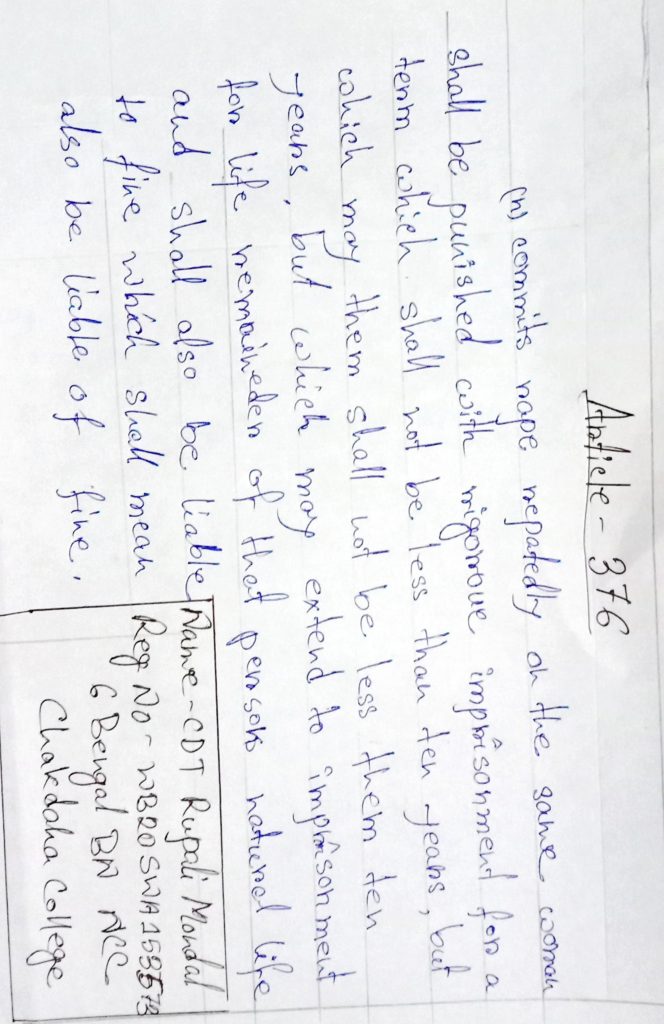 Article - 376
(n) commits rape repatedly on the same woman
shall be punished with rigoroue imprisonment for a
term which shall not be less than ten years, but
which may them shall not be less them ten
years, but which may extend to imprisonment
for life remaineder of that persons natural life
and shall also be liable
to fine which shall mean
also be liable of fine.
Name - CDT Rupali Mondal
Reg No - WB20SWA153573
6 Bengal BN NCC
Chakdaha College